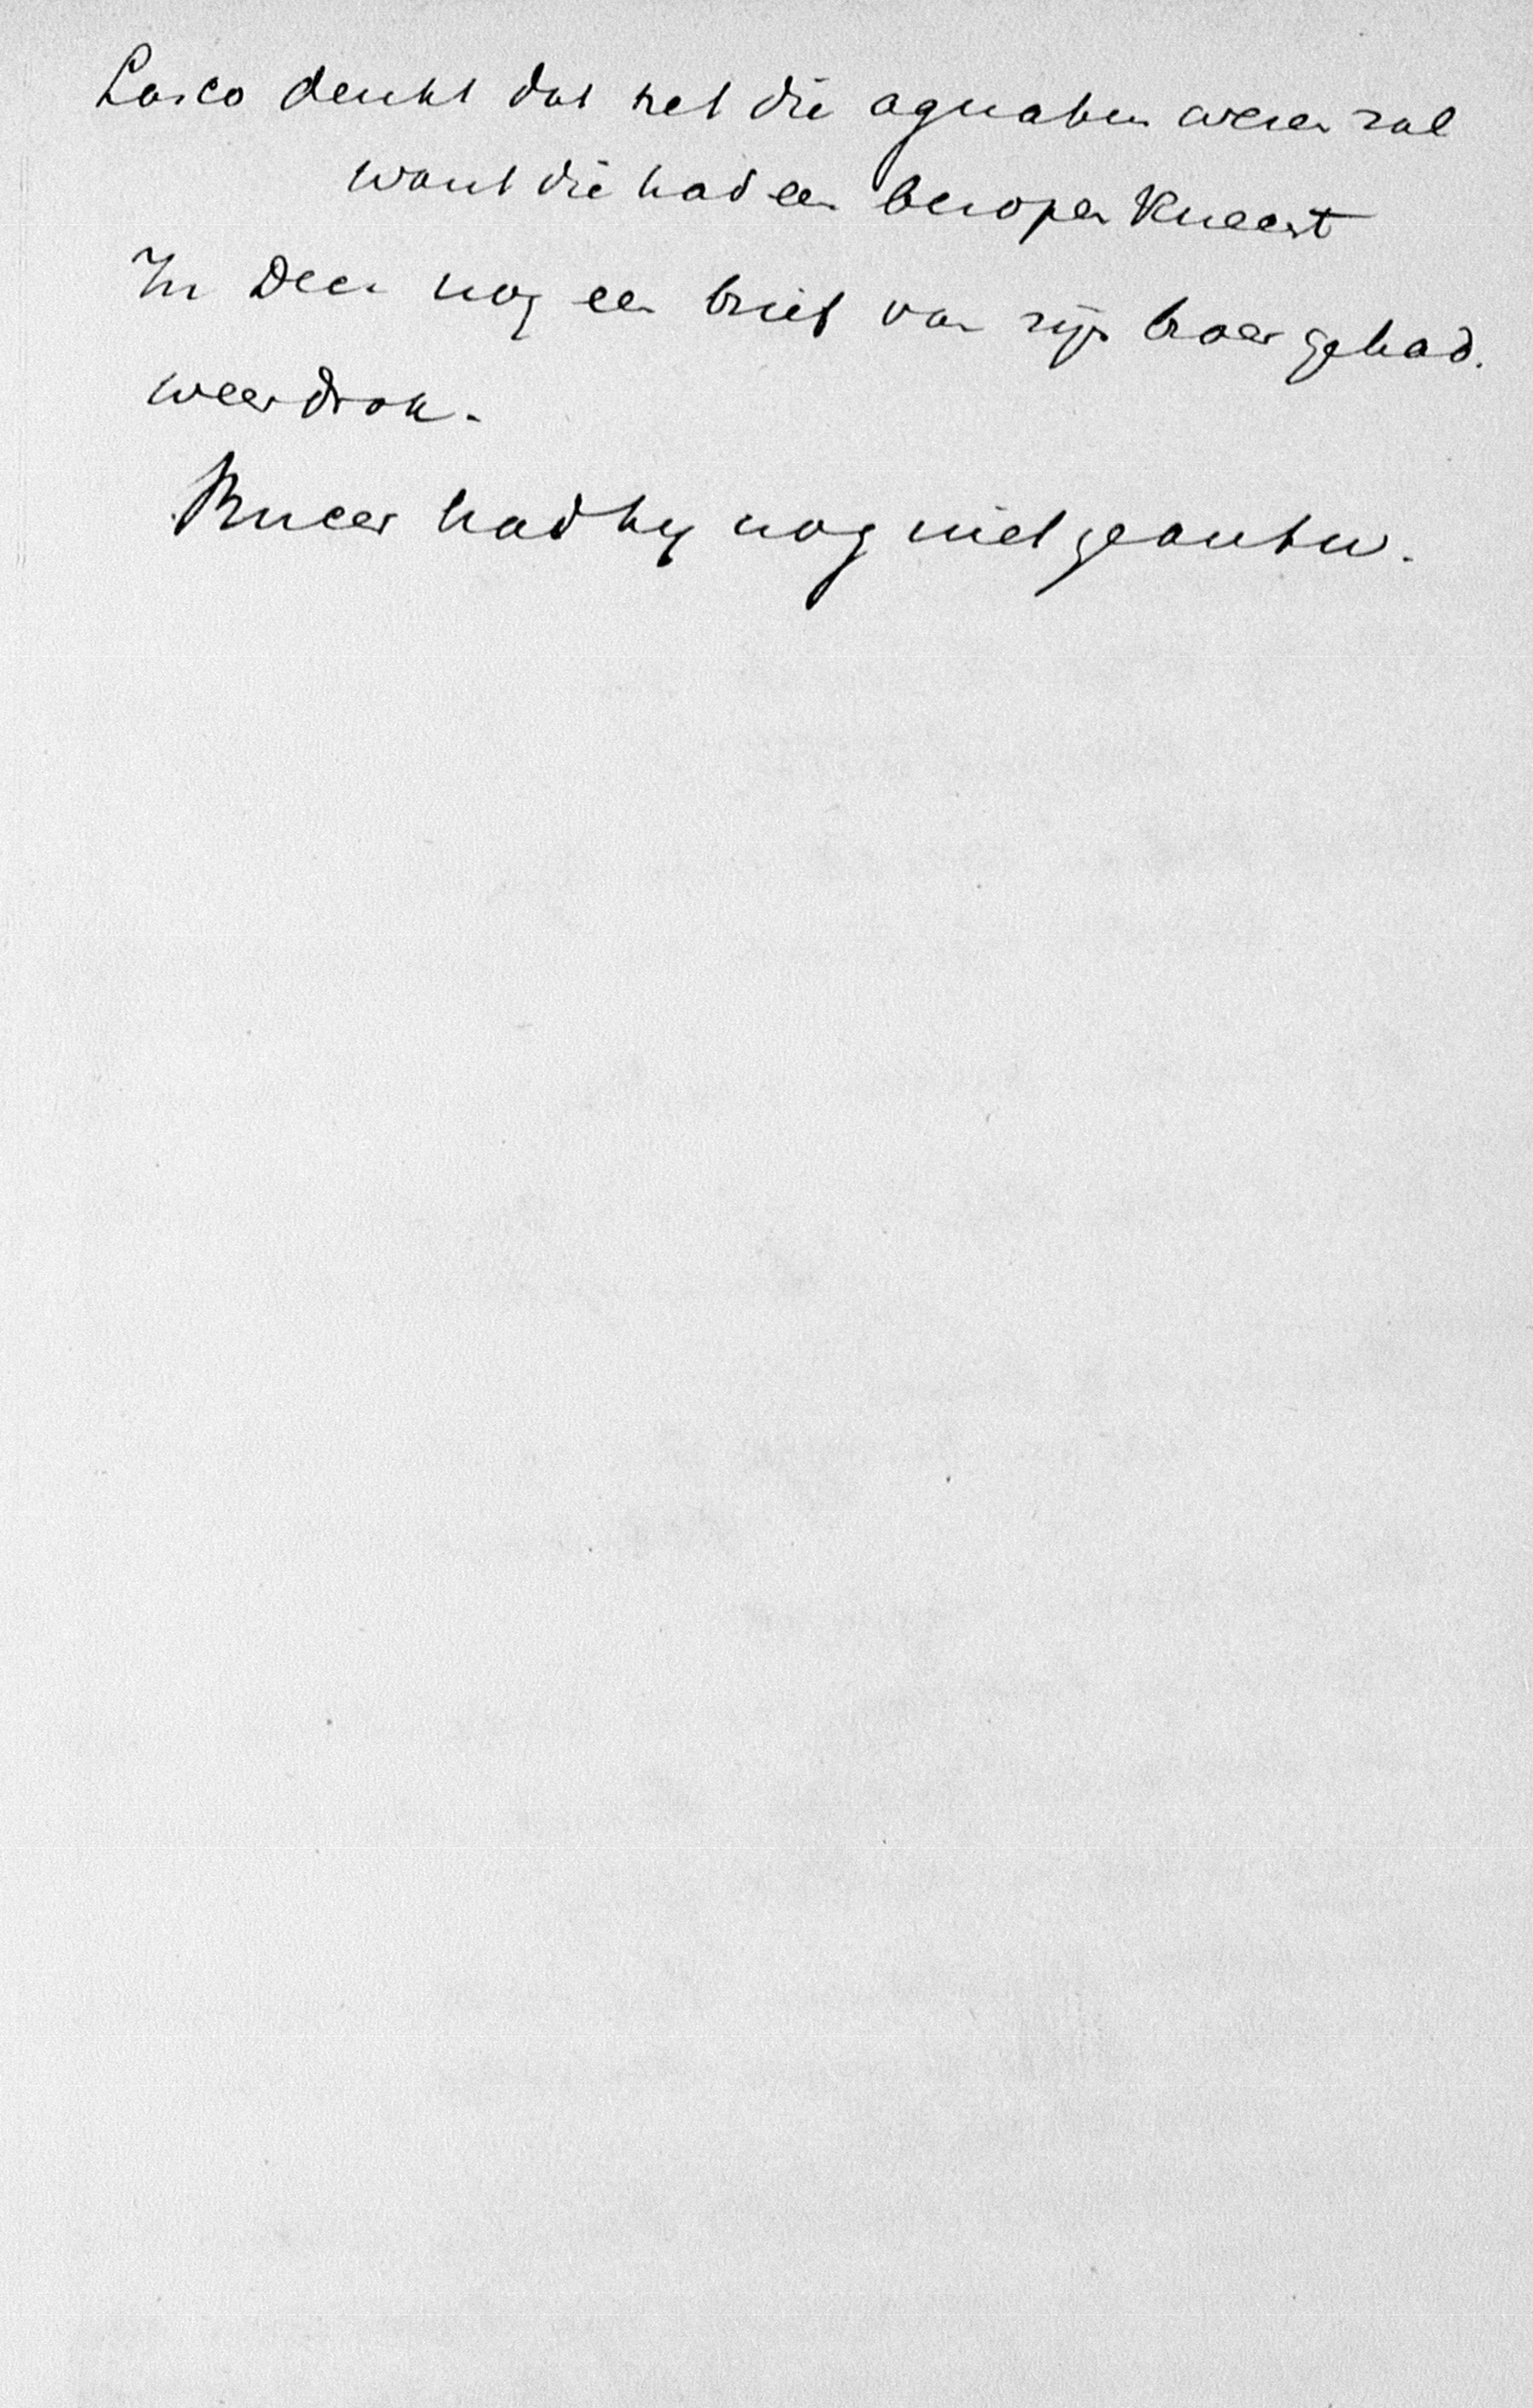 Lasco denkt dat het die agnaten wezen zal
want die had een benopen Kneest
In Dec. nog een brief van zijn broer gehad.
weer drok.
Bucer had hy nog niet geantw.